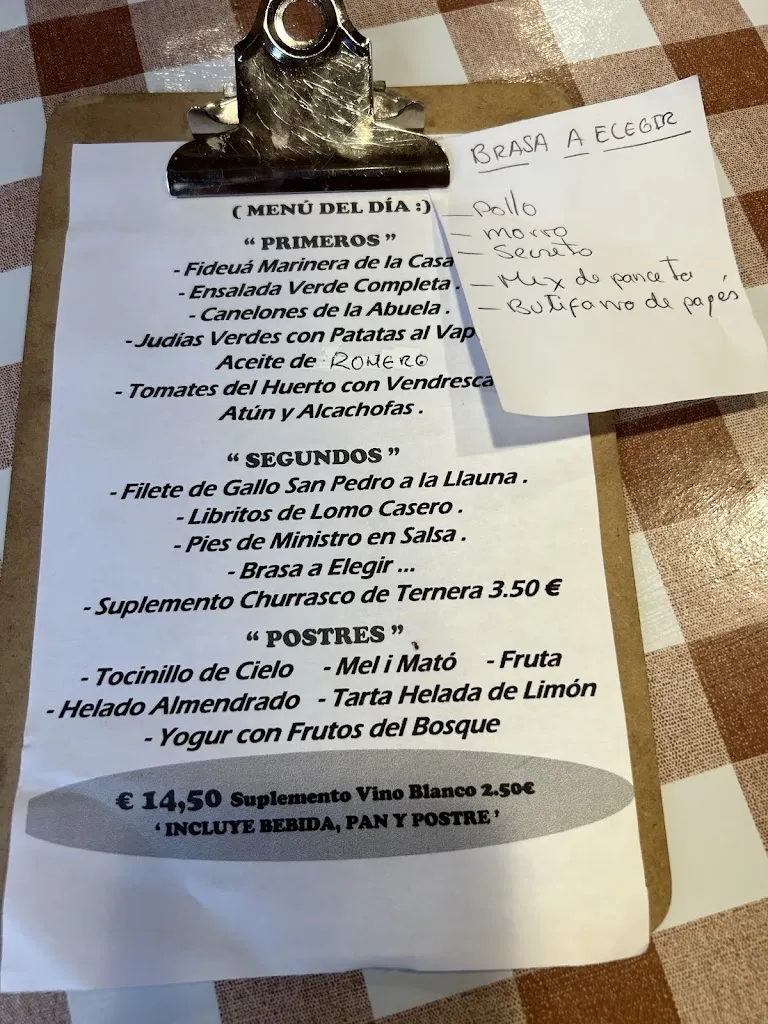 ( MENÚ DEL DÍA :)
“ PRIMEROS ”
- Fideuá Marinera de la Casa
- Ensalada Verde Completa .
- Canelones de la Abuela .
- Judías Verdes con Patatas al Vap
Aceite de ROMERO
- Tomates del Huerto con Vendresca
Atún y Alcachofas .
“ SEGUNDOS ”
- Filete de Gallo San Pedro a la Llauna .
- Libritos de Lomo Casero .
- Pies de Ministro en Salsa .
- Brasa a Elegir ...
- Suplemento Churrasco de Ternera 3.50 €
“ POSTRES ”
- Tocinillo de Cielo - Mel i Mató - Fruta
- Helado Almendrado - Tarta Helada de Limón
- Yogur con Frutos del Bosque
€ 14,50 Suplemento Vino Blanco 2.50€
‘ INCLUYE BEBIDA, PAN Y POSTRE ’
BRASA A ELEGIR
- Pollo
- Morro
- Secreto
- Mix de panceta
- Butifarra de pagés